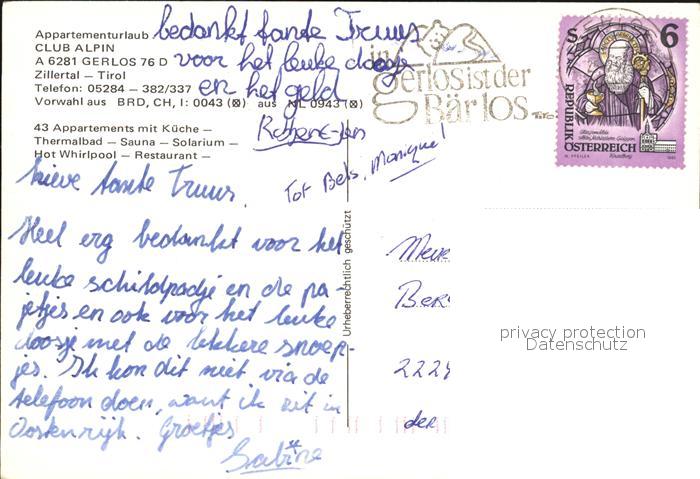 Appartementurlaub
CLUB ALPIN
A 6281 GERLOS 76 D
Zillertal – Tirol
Telefon: 05284 – 382/337
Vorwahl aus BRD, CH, I: 0043 (☒) aus NL 0943 (☒)
43 Appartements mit Küche –
Thermalbad – Sauna – Solarium –
Hot Whirlpool – Restaurant –
bedankt tante Truus
voor het leuke doosje
en het geld
Tot Bels, Monique!
in
gerlos ist der
Bär los
S 6
REPUBLIK
ÖSTERREICH
lieve tante Truus,
Heel erg bedankt voor het
leuke schildpadje en de pa-
jetjes en ook voor het leuke
doosje met de lekkere snoep-
jes. Ik kon dit niet via de
telefoon doen, want ik zit in
Oostenrijk. Groetjes
Sabine
Urheberrechtlich geschützt
Mevr
Ber
222
der
privacy protection
Datenschutz